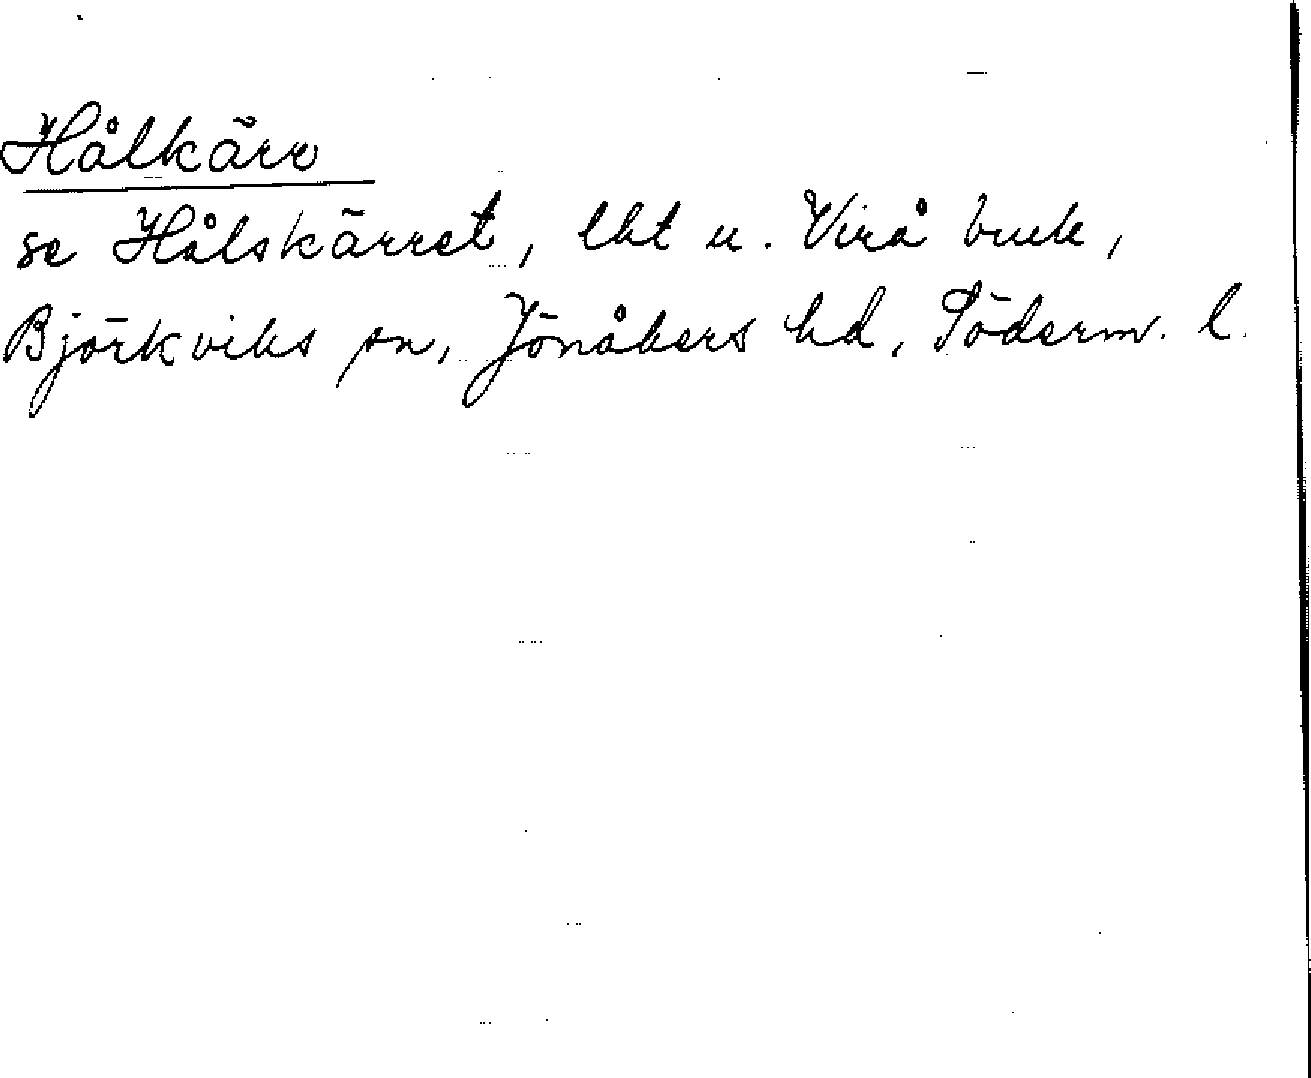 Hålkärr
se Hålskärret, lht u. Virå bruk,
Björkviks sn, Jönåkers hd, Söderm. l.